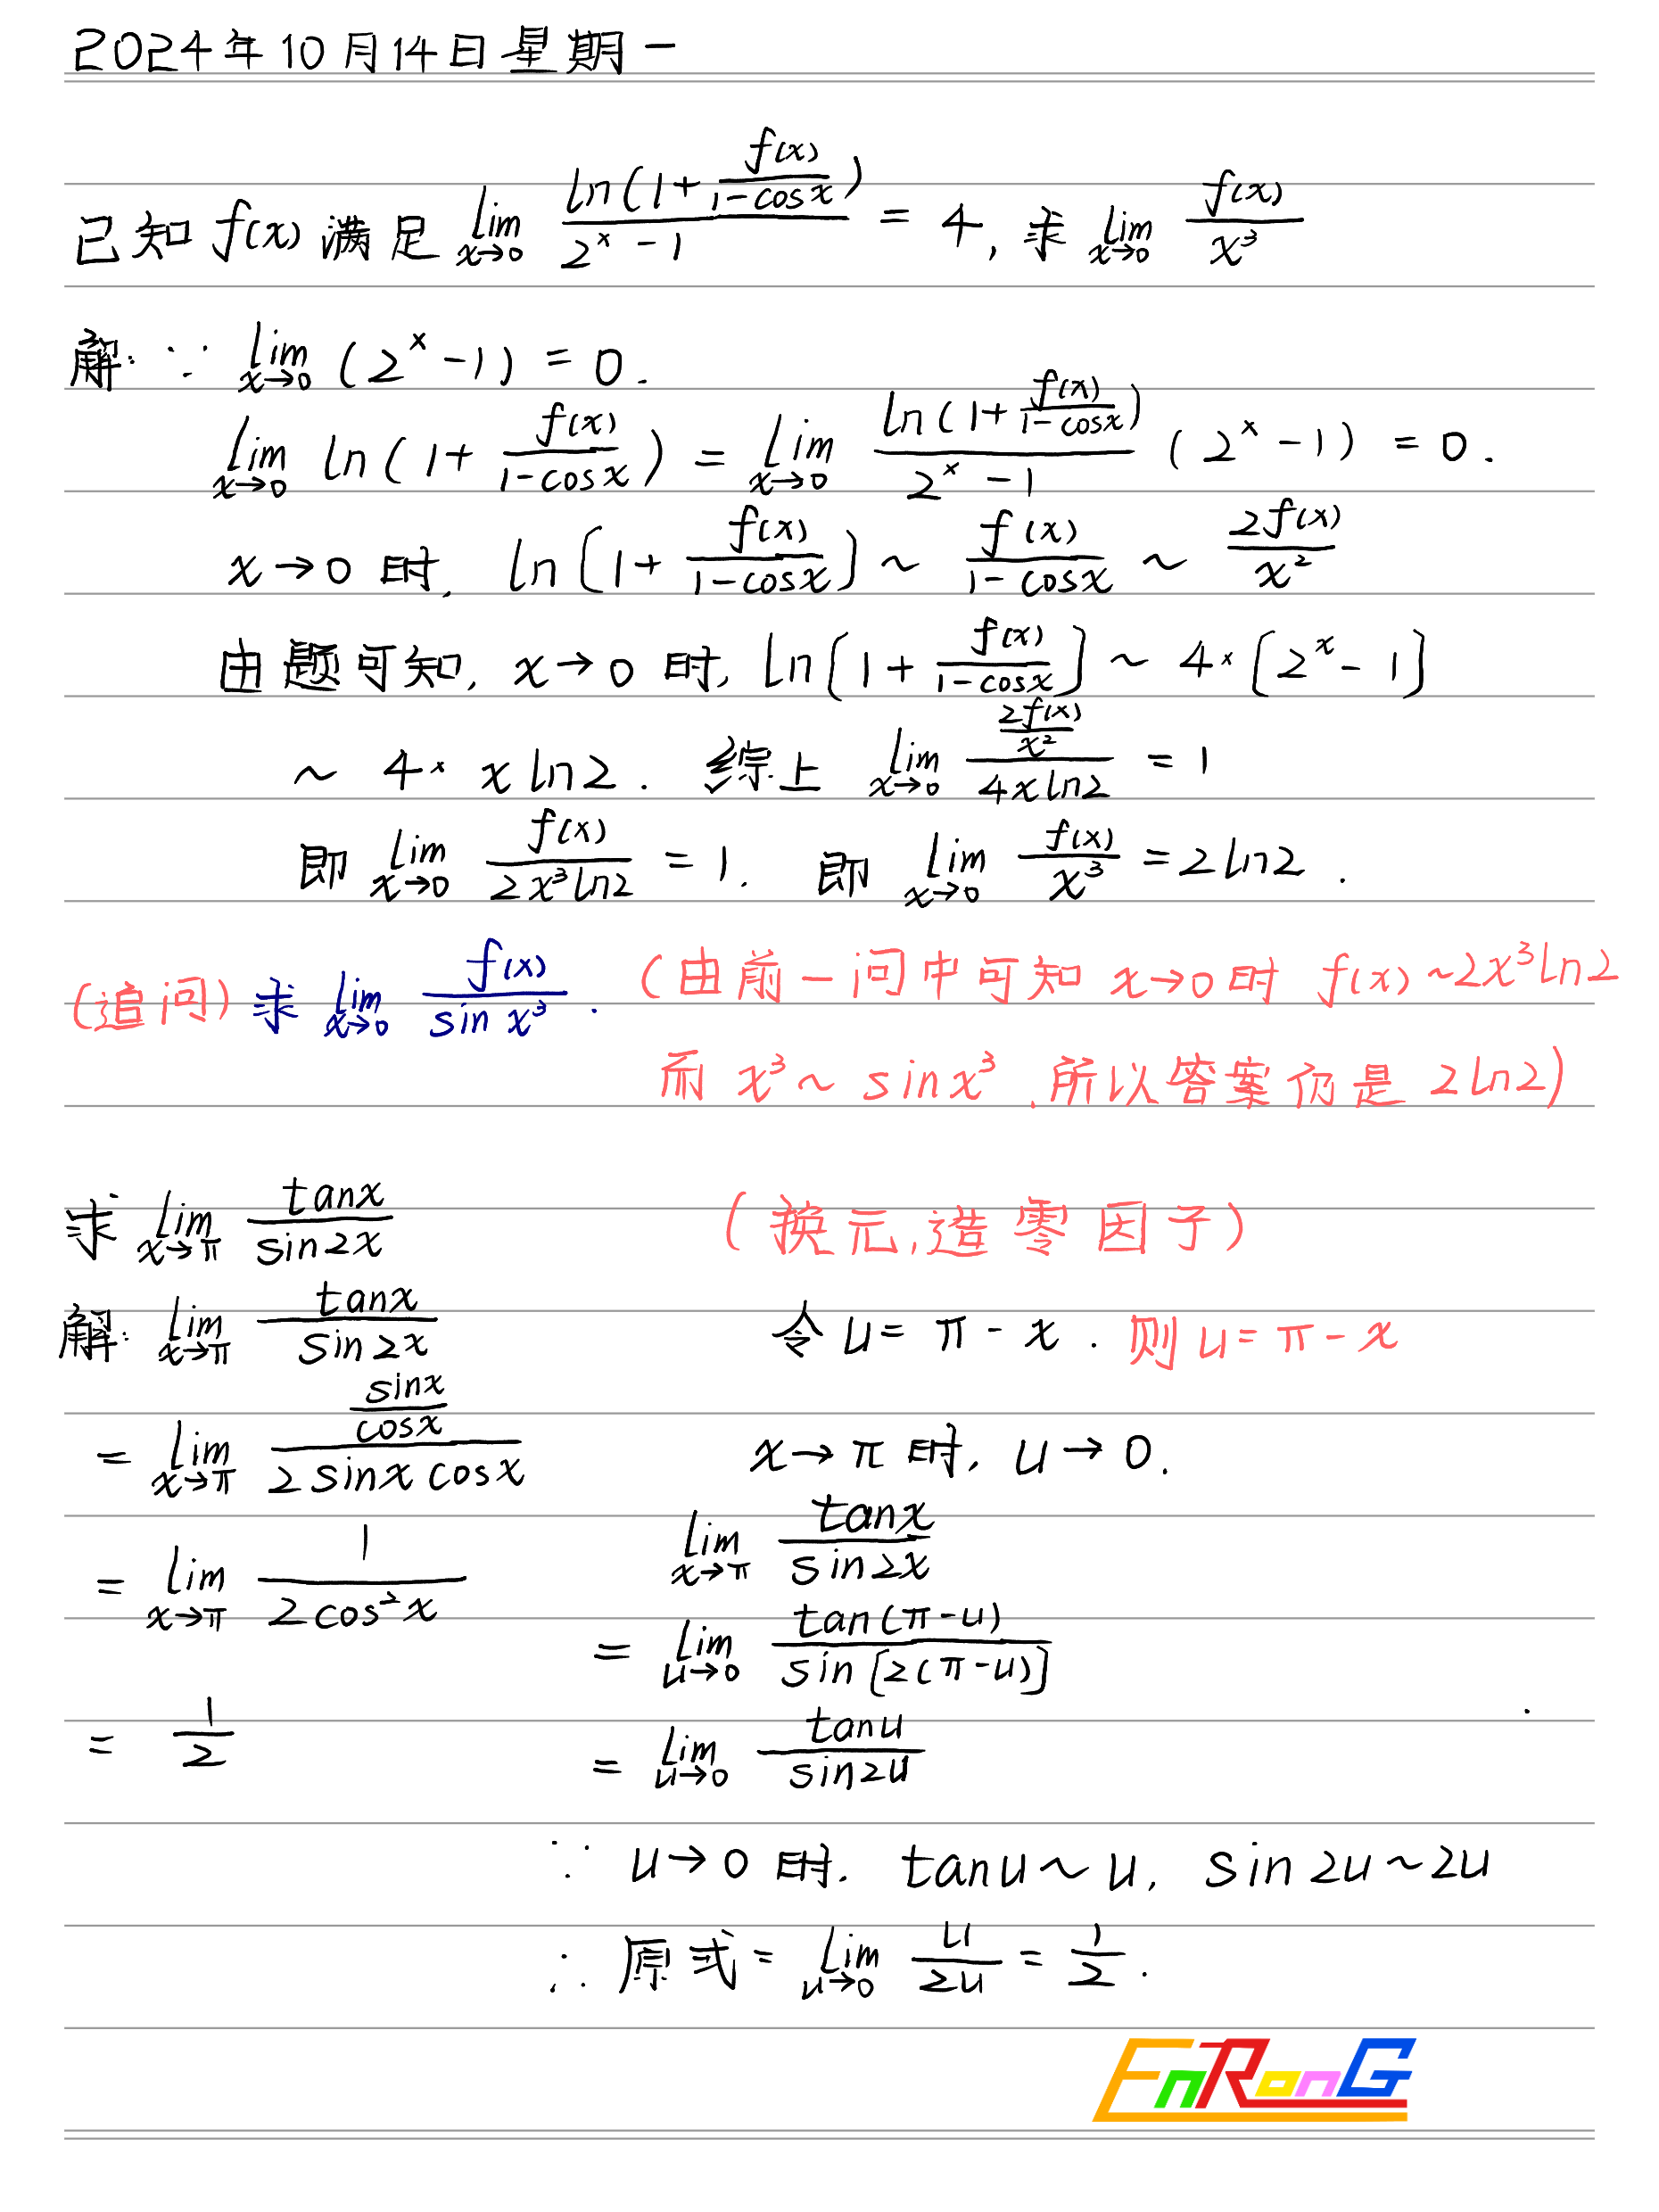 2024年10月14日星期一
已知 f(x) 满足 lim_{x→0} ln(1+f(x)/(1-cosx))/(2^x-1) = 4, 求 lim_{x→0} f(x)/x³
解: ∵ lim_{x→0} (2^x-1) = 0.
lim_{x→0} ln(1+f(x)/(1-cosx)) = lim_{x→0} ln(1+f(x)/(1-cosx))/(2^x-1) (2^x-1) = 0.
x→0 时, ln[1+f(x)/(1-cosx)] ~ f(x)/(1-cosx) ~ 2f(x)/x²
由题可知, x→0 时, ln[1+f(x)/(1-cosx)] ~ 4×[2^x-1]
~ 4× xln2. 综上 lim_{x→0} (2f(x)/x²)/(4xln2) = 1
即 lim_{x→0} f(x)/(2x³ln2) = 1. 即 lim_{x→0} f(x)/x³ = 2ln2.
(追问) 求 lim_{x→0} f(x)/sin x³. (由前一问中可知 x→0 时 f(x)~2x³ln2
而 x³~sinx³,所以答案仍是 2ln2)
求 lim_{x→π} tanx/sin2x (换元,造零因子)
解: lim_{x→π} tanx/sin2x
= lim_{x→π} (sinx/cosx)/(2sinxcosx)
= lim_{x→π} 1/(2cos²x)
= 1/2
令 u = π-x. 则 u = π-x
x→π 时, u→0.
lim_{x→π} tanx/sin2x
= lim_{u→0} tan(π-u)/sin[2(π-u)]
= lim_{u→0} tanu/sin2u
∵ u→0 时. tanu~u, sin2u~2u
∴ 原式 = lim_{u→0} u/2u = 1/2.
EnRonG